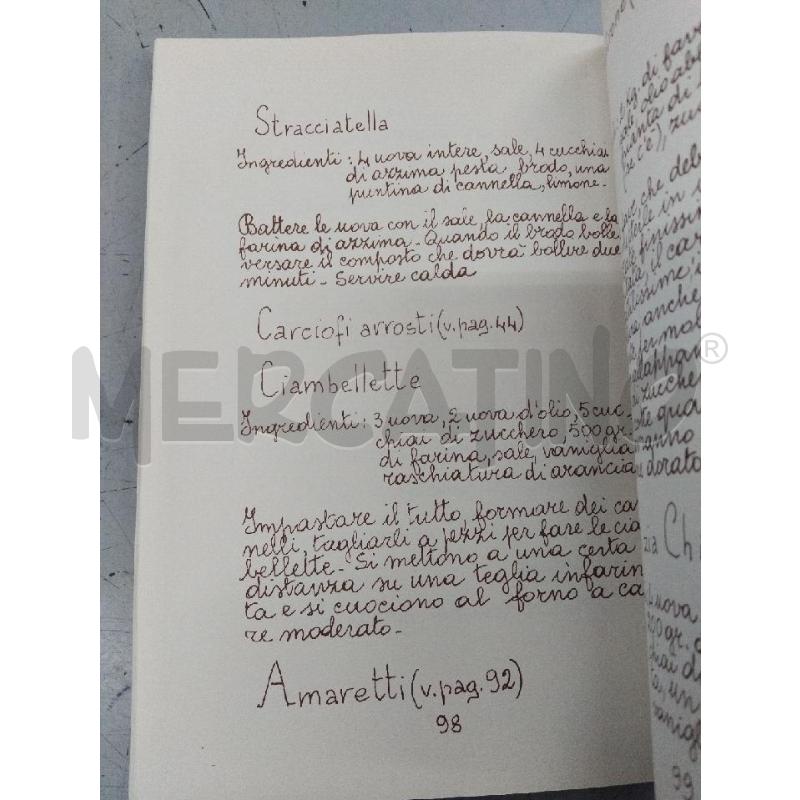 Stracciatella
Ingredienti: 4 uova intere, sale, 4 cucchiai
di azzima pesta, brodo, una
puntina di cannella, limone-
Battere le uova con il sale, la cannella e la
farina di azzima- Quando il brodo bolle
versare il composto che dovrà bollire due
minuti- Servire calda
Carciofi arrosti (v. pag. 44)
Ciambellette
Ingredienti: 3 uova, 2 uova d'olio, 5 cuc-
chiai di zucchero, 500 gr.
di farina, sale, vaniglia
raschiatura di arancia
Impastare il tutto, formare dei ca
nelli, tagliarli a pezzi per fare le cia
bellette- Si mettono a una certa
distanza su una teglia infarin
ta e si cuociono al forno a ca
re moderato-
Amaretti (v. pag. 92)
98
MERCATINO®
kg. di fav
olio ab
di
se c'è), zuc
che deb
in
il car
anche
zucchero
dorato
Ch
uova
gr.
un
99